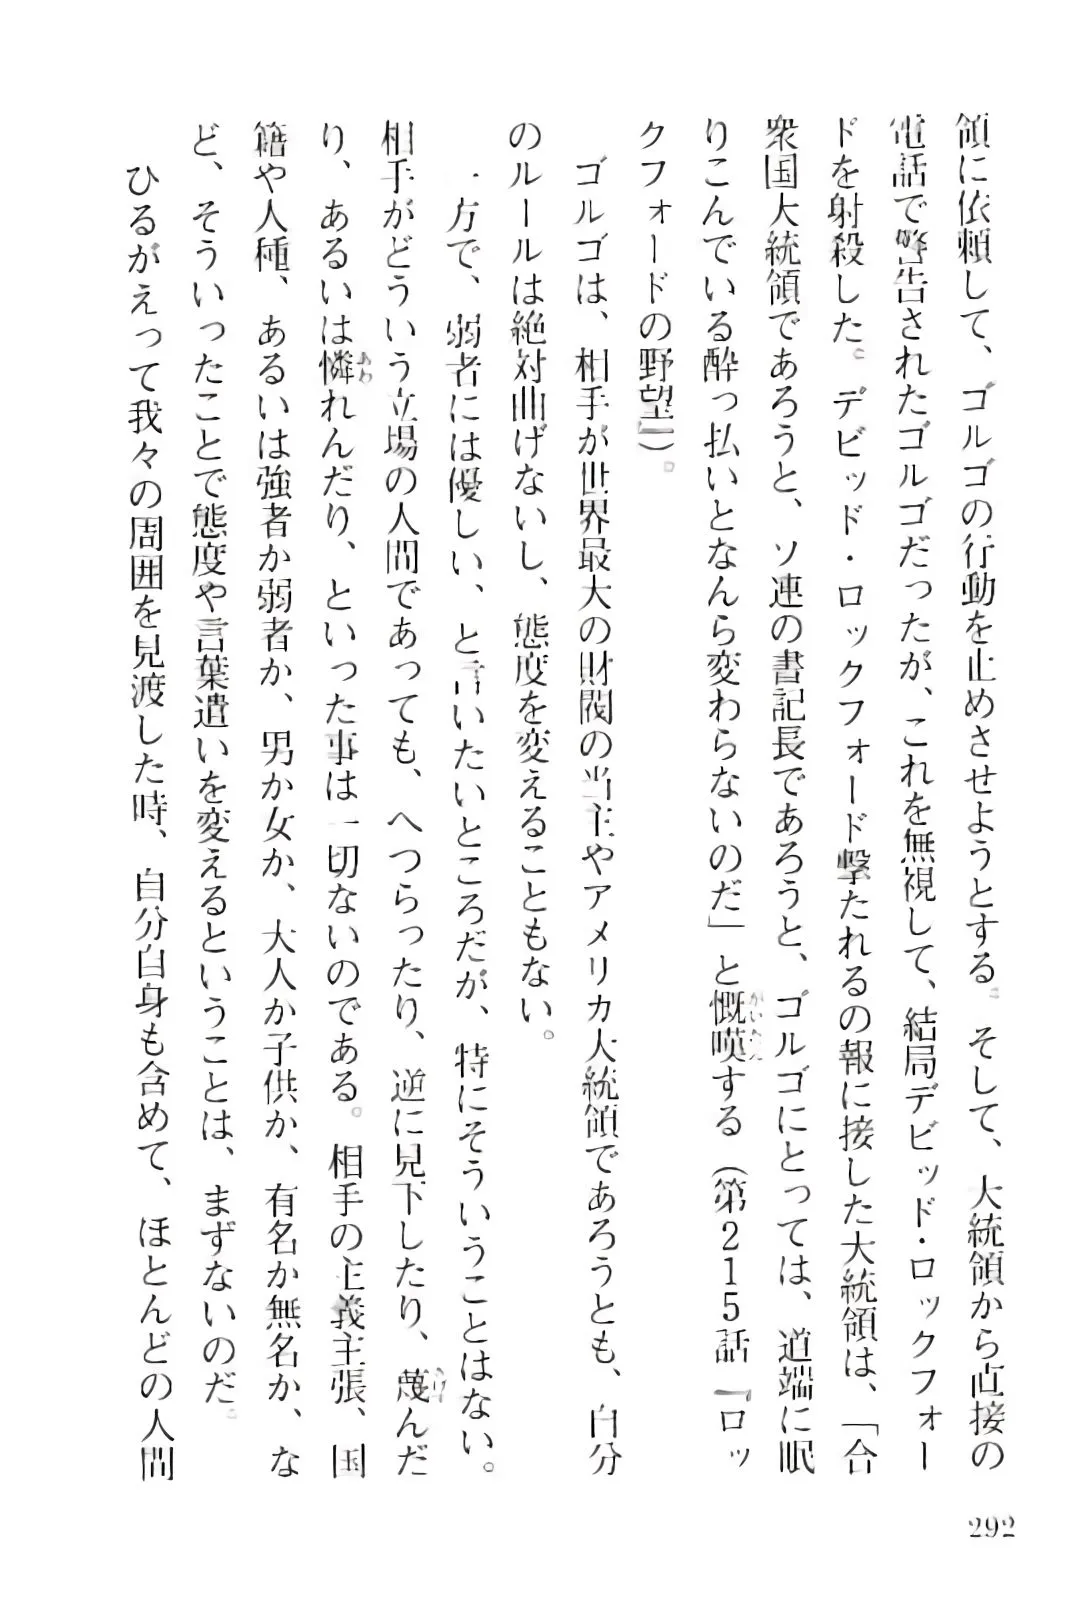 領に依頼して、ゴルゴの行動を止めさせようとする。そして、大統領から直接の
電話で警告されたゴルゴだったが、これを無視して、結局デビッド・ロックフォー
ドを射殺した。デビッド・ロックフォード撃たれるの報に接した大統領は、「合
衆国大統領であろうと、ソ連の書記長であろうと、ゴルゴにとっては、道端に眠
りこんでいる酔っ払いとなんら変わらないのだ」と慨嘆する（第215話『ロッ
クフォードの野望』）。
　ゴルゴは、相手が世界最大の財閥の当主やアメリカ大統領であろうとも、自分
のルールは絶対曲げないし、態度を変えることもない。
　一方で、弱者には優しい、と言いたいところだが、特にそういうことはない。
相手がどういう立場の人間であっても、へつらったり、逆に見下したり、蔑んだ
り、あるいは憐れんだり、といった事は一切ないのである。相手の主義主張、国
籍や人種、あるいは強者か弱者か、男か女か、大人か子供か、有名か無名か、な
ど、そういったことで態度や言葉遣いを変えるということは、まずないのだ。
　ひるがえって我々の周囲を見渡した時、自分自身も含めて、ほとんどの人間
292